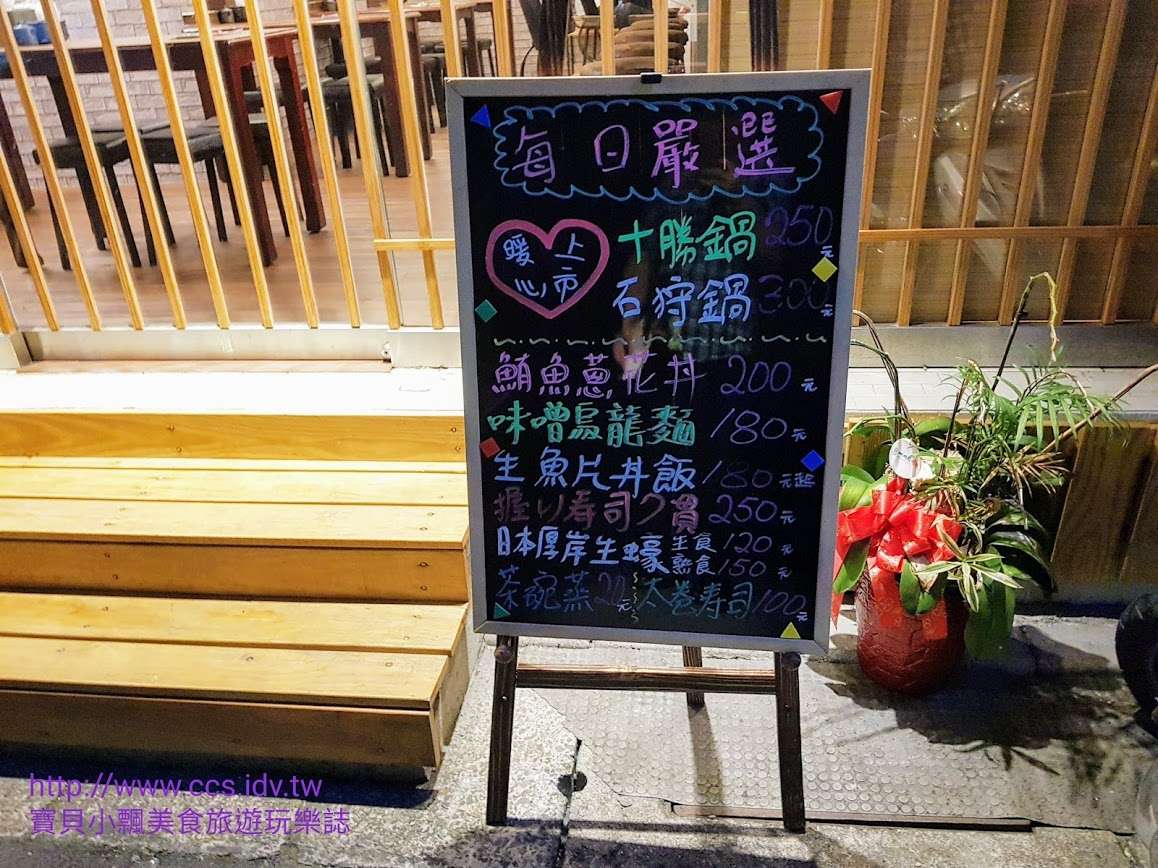 每日嚴選
暖心上市
十勝鍋 250元
石狩鍋 300元
鮪魚蔥花丼 200元
味噌烏龍麵 180元
生魚片丼飯 180元起
握り寿司7貫 250元
日本厚岸生蠔 生食 120元
熟食 150元
茶碗蒸 20元 太卷寿司 100元
http://www.ccs.idv.tw
寶貝小飄美食旅遊玩樂誌